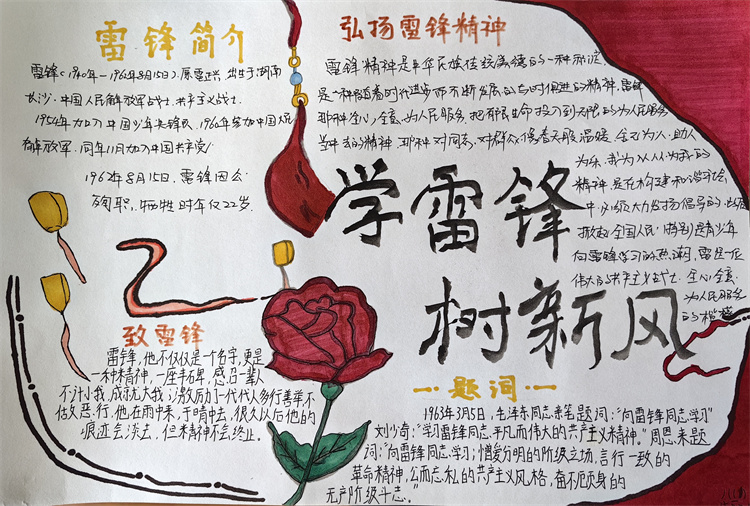 雷锋简介
雷锋(1940年—1962年8月15日),原雷正兴,出生于湖南
长沙.中国人民解放军战士.共产主义战士.
1954年加入中国少年先锋队,1960年参加中国人民
解放军,同年11月加入中国共产党.
1962年8月15日,雷锋因公
殉职,牺牲时年仅22岁.
弘扬雷锋精神
雷锋精神是中华民族传统美德的一种积淀,
是一种随着时代进步而不断发展的与时俱进的精神.雷锋
那种全心全意为人民服务,把有限生命投入到无限的为人民服务
当中去的精神,那种对同志,对群众像春天般温暖,舍己为人、助人
为乐,我为人人人为我的
精神,是在构建和谐社会
中必须大力发扬倡导的,
全国人民,特别是青少年
向雷锋学习的热潮,雷是一位
伟大的共产主义战士.全心全意
为人民服务
的楷模
学雷锋
树新风
致雷锋
雷锋,他不仅仅是一个名字,更是
一种精神,一座丰碑,感召一辈人
不计小我,成就大我;激励了一代代人多行善举不
做恶行,他在雨中来,于晴中去,很久以后他的
痕迹会淡去,但精神不会终止.
题词
1963年3月5日,毛泽东同志亲笔题词:"向雷锋同志学习"
刘少奇:"学习雷锋同志平凡而伟大的共产主义精神."周恩来题
词:"向雷锋同志学习:憎爱分明的阶级立场,言行一致的
革命精神,公而忘私的共产主义风格,奋不顾身的
无产阶级斗志."